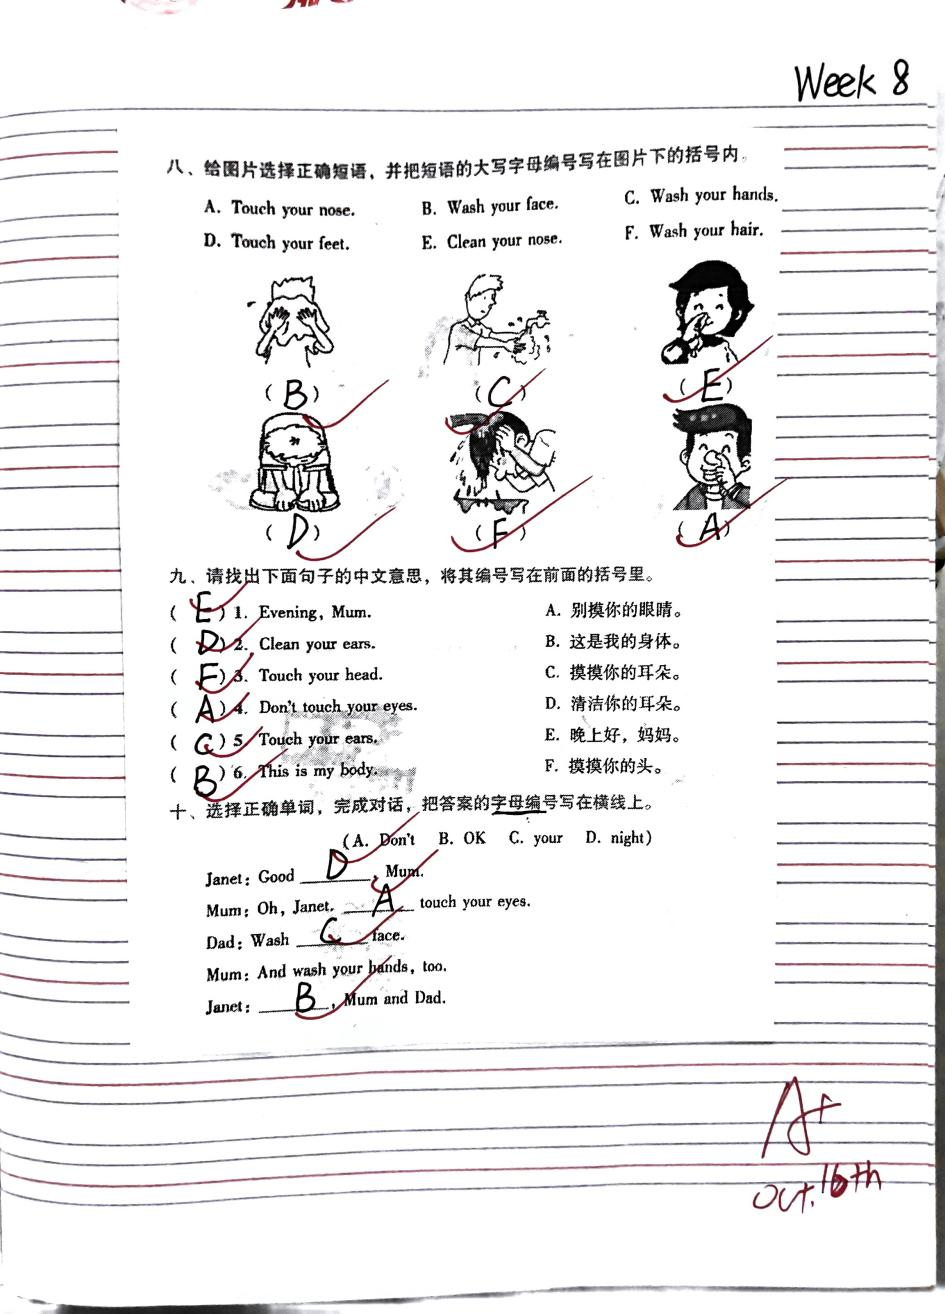 Week 8
八、给图片选择正确短语，并把短语的大写字母编号写在图片下的括号内。
A. Touch your nose. B. Wash your face. C. Wash your hands.
D. Touch your feet. E. Clean your nose. F. Wash your hair.
(B) (C) (E)
(D) (F) (A)
九、请找出下面句子的中文意思，将其编号写在前面的括号里。
(E) 1. Evening, Mum. A. 别摸你的眼睛。
(D) 2. Clean your ears. B. 这是我的身体。
(F) 3. Touch your head. C. 摸摸你的耳朵。
(A) 4. Don't touch your eyes. D. 清洁你的耳朵。
(C) 5 Touch your ears. E. 晚上好，妈妈。
(B) 6. This is my body. F. 摸摸你的头。
十、选择正确单词，完成对话，把答案的字母编号写在横线上。
(A. Don't B. OK C. your D. night)
Janet: Good D, Mum.
Mum: Oh, Janet. A touch your eyes.
Dad: Wash C face.
Mum: And wash your hands, too.
Janet: B, Mum and Dad.
A+
Oct. 16th